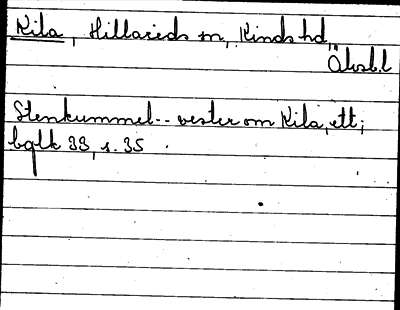 Kila, Hillareds sn, Kinds hd,
Älvsb.l
Stenkummel-- vester om Kila, ett;
bglk 33, s. 35